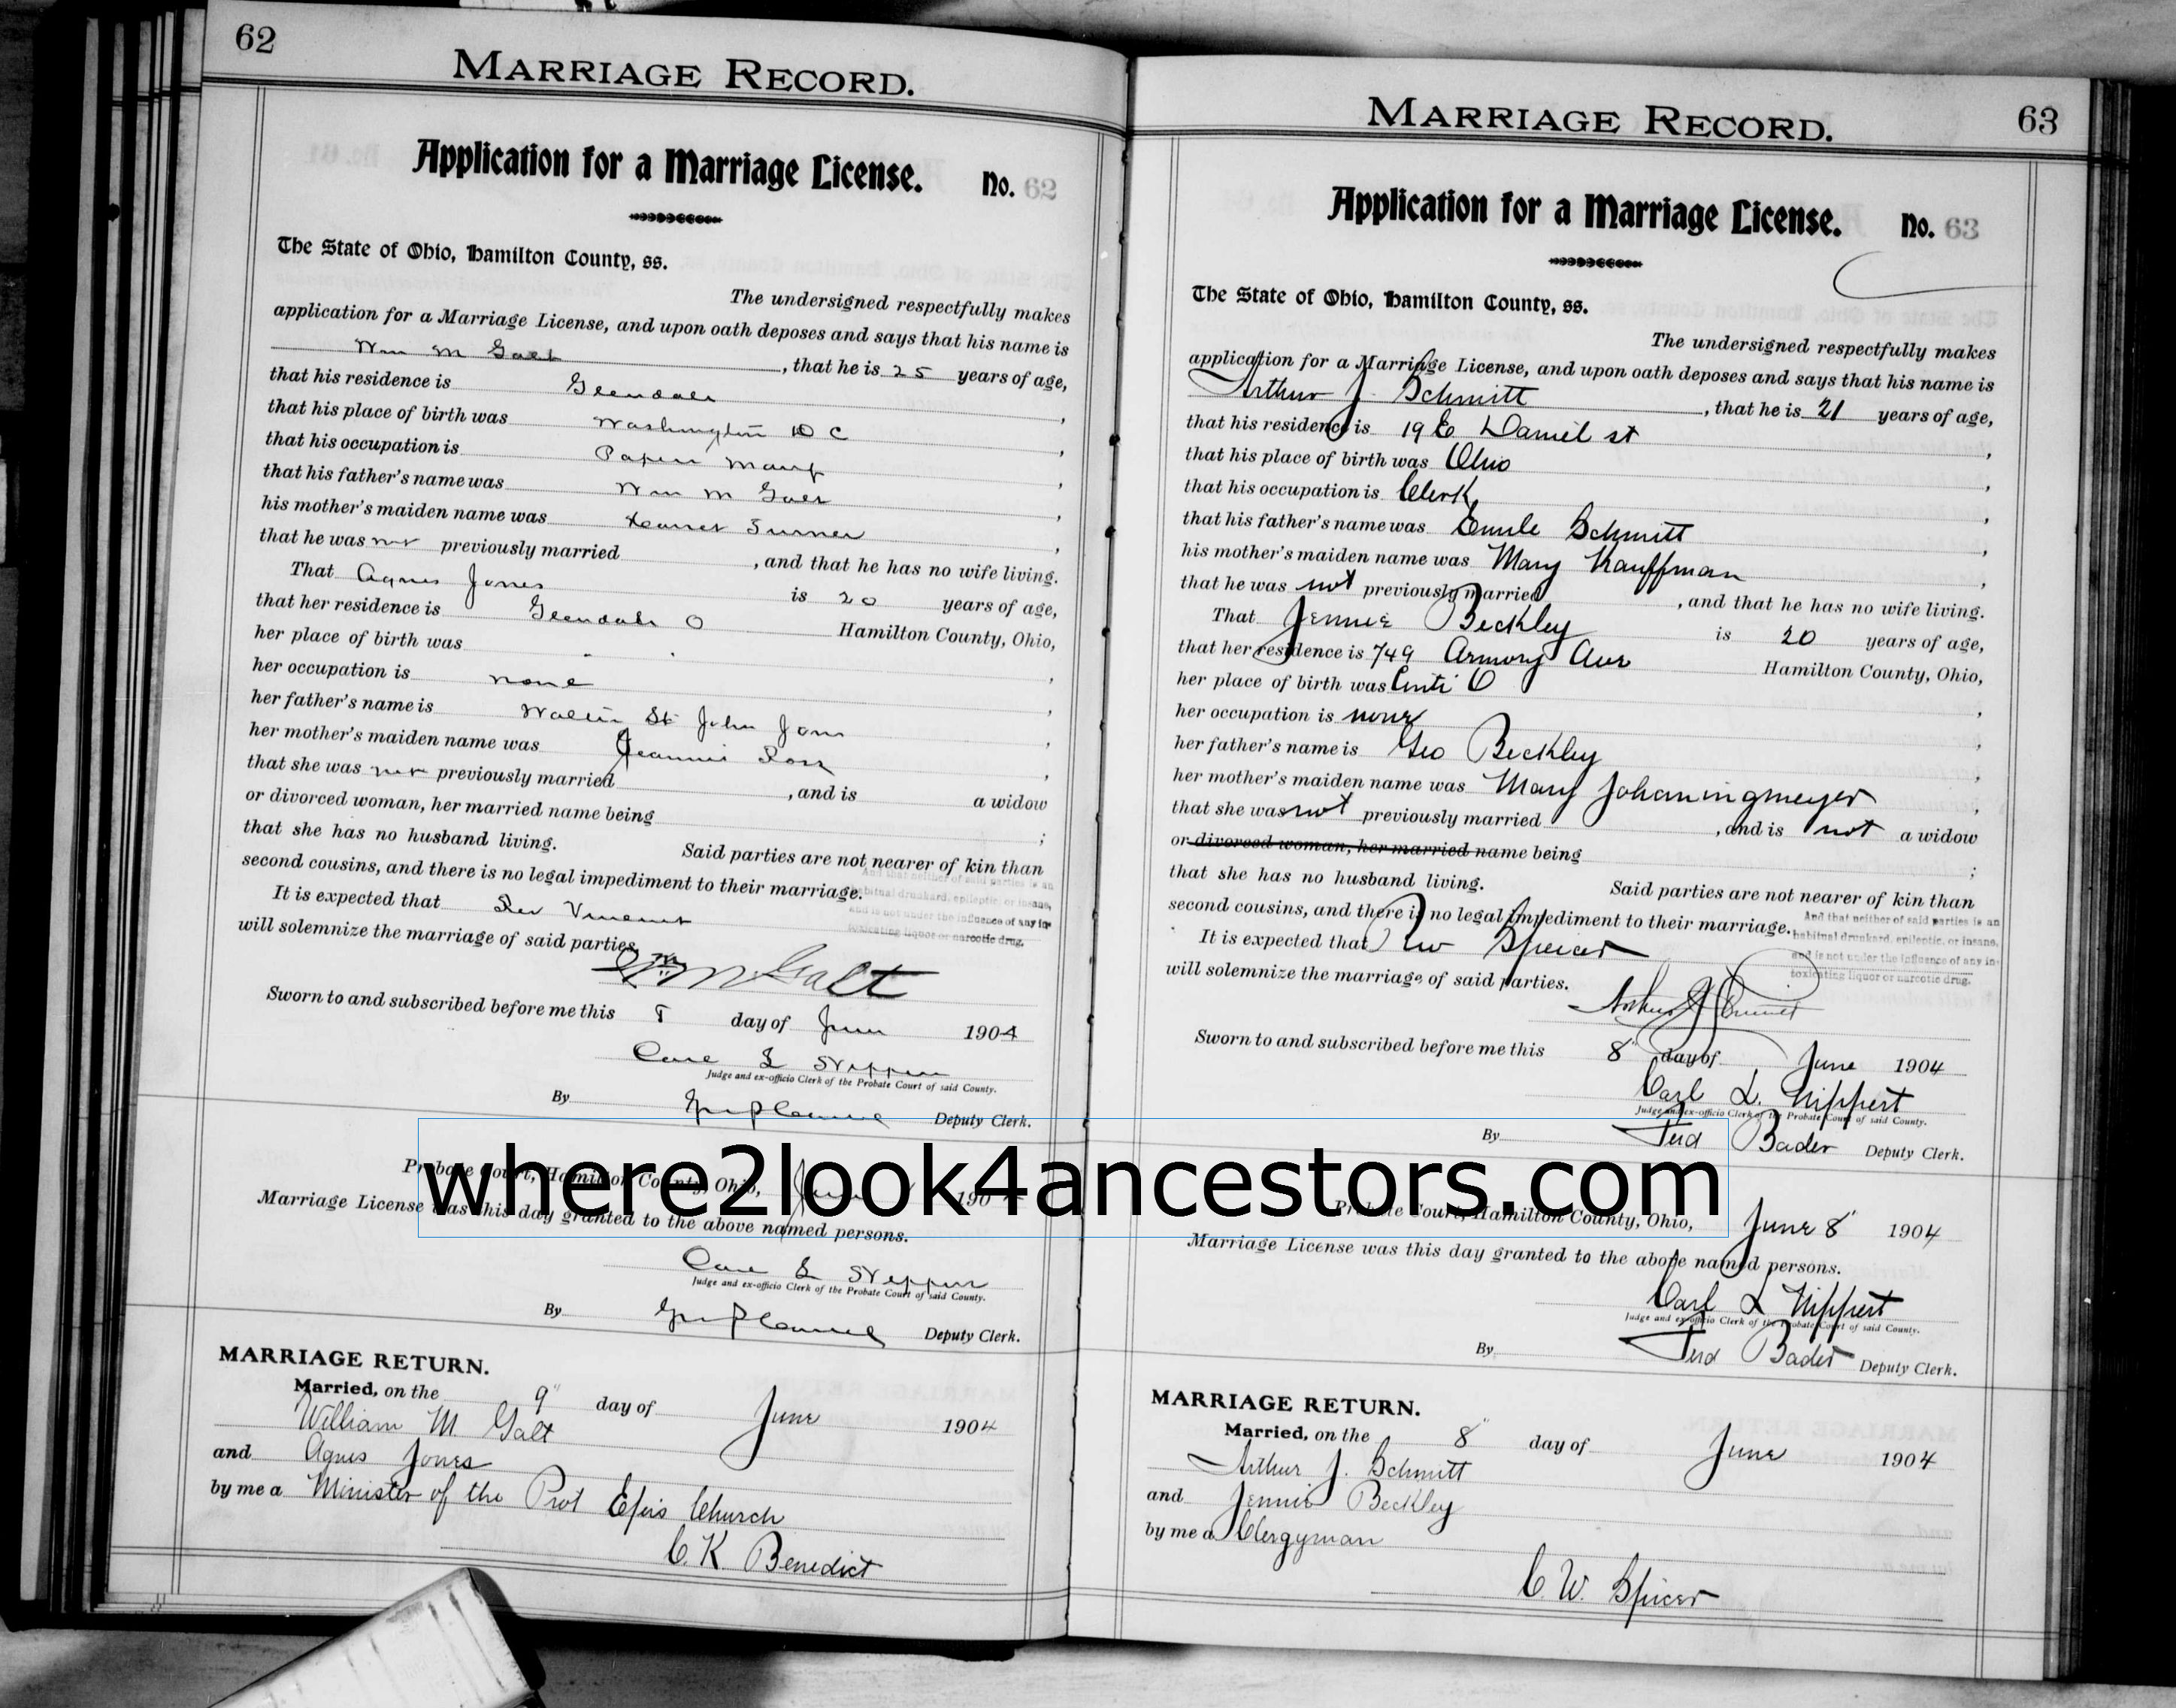 62
MARRIAGE RECORD.
Application for a Marriage License. No. 62
The State of Ohio, Hamilton County, ss.
The undersigned respectfully makes
application for a Marriage License, and upon oath deposes and says that his name is
Wm M Galt, that he is 25 years of age,
that his residence is Glendale,
that his place of birth was Washington D C,
that his occupation is Paper Manf,
that his father's name was Wm M Galt,
his mother's maiden name was Turner,
that he was not previously married, and that he has no wife living.
That Agnes Jones is 20 years of age,
that her residence is Glendale O Hamilton County, Ohio,
her place of birth was
her occupation is none,
her father's name is Walter St John Jones,
her mother's maiden name was Jeannie Ross,
that she was not previously married, and is a widow
or divorced woman, her married name being
that she has no husband living. Said parties are not nearer of kin than
second cousins, and there is no legal impediment to their marriage. And that neither of said parties is an habitual drunkard, epileptic, or insane, and is not under the influence of any intoxicating liquor or narcotic drug.
It is expected that Rev Vincent
will solemnize the marriage of said parties.
Wm M Galt
Sworn to and subscribed before me this 8 day of June 1904
Carl L Nippert
Judge and ex-officio Clerk of the Probate Court of said County.
By Deputy Clerk.
Probate Court, Hamilton County, Ohio, June 1904
Marriage License was this day granted to the above named persons.
Carl L Nippert
Judge and ex-officio Clerk of the Probate Court of said County.
By Deputy Clerk.
MARRIAGE RETURN.
Married, on the 9" day of June 1904
William M Galt
and Agnes Jones
by me a Minister of the Prot Epis Church
C. K. Benedict
where2look4ancestors.com
63
MARRIAGE RECORD.
Application for a Marriage License. No. 63
The State of Ohio, Hamilton County, ss.
The undersigned respectfully makes
application for a Marriage License, and upon oath deposes and says that his name is
Arthur J. Schmitt, that he is 21 years of age,
that his residence is 19 E Daniel st,
that his place of birth was Ohio,
that his occupation is Clerk,
that his father's name was Emile Schmitt,
his mother's maiden name was Mary Kauffman,
that he was not previously married, and that he has no wife living.
That Jennie Beckley is 20 years of age,
that her residence is 749 Armory Ave Hamilton County, Ohio,
her place of birth was Cinti O
her occupation is none,
her father's name is Geo Beckley,
her mother's maiden name was Mary Johanningmeyer,
that she was not previously married, and is not a widow
or divorced woman, her married name being;
that she has no husband living. Said parties are not nearer of kin than
second cousins, and there is no legal impediment to their marriage. And that neither of said parties is an habitual drunkard, epileptic, or insane, and is not under the influence of any intoxicating liquor or narcotic drug.
It is expected that Rev Spicer
will solemnize the marriage of said parties.
Arthur J Schmitt
Sworn to and subscribed before me this 8" day of June 1904
Carl L. Nippert
Judge and ex-officio Clerk of the Probate Court of said County.
By Ferd Bader Deputy Clerk.
Probate Court, Hamilton County, Ohio, June 8" 1904
Marriage License was this day granted to the above named persons.
Carl L Nippert
Judge and ex-officio Clerk of the Probate Court of said County.
By Ferd Bader Deputy Clerk.
MARRIAGE RETURN.
Married, on the 8" day of June 1904
Arthur J. Schmitt
and Jennie Beckley
by me a Clergyman
C. W. Spicer